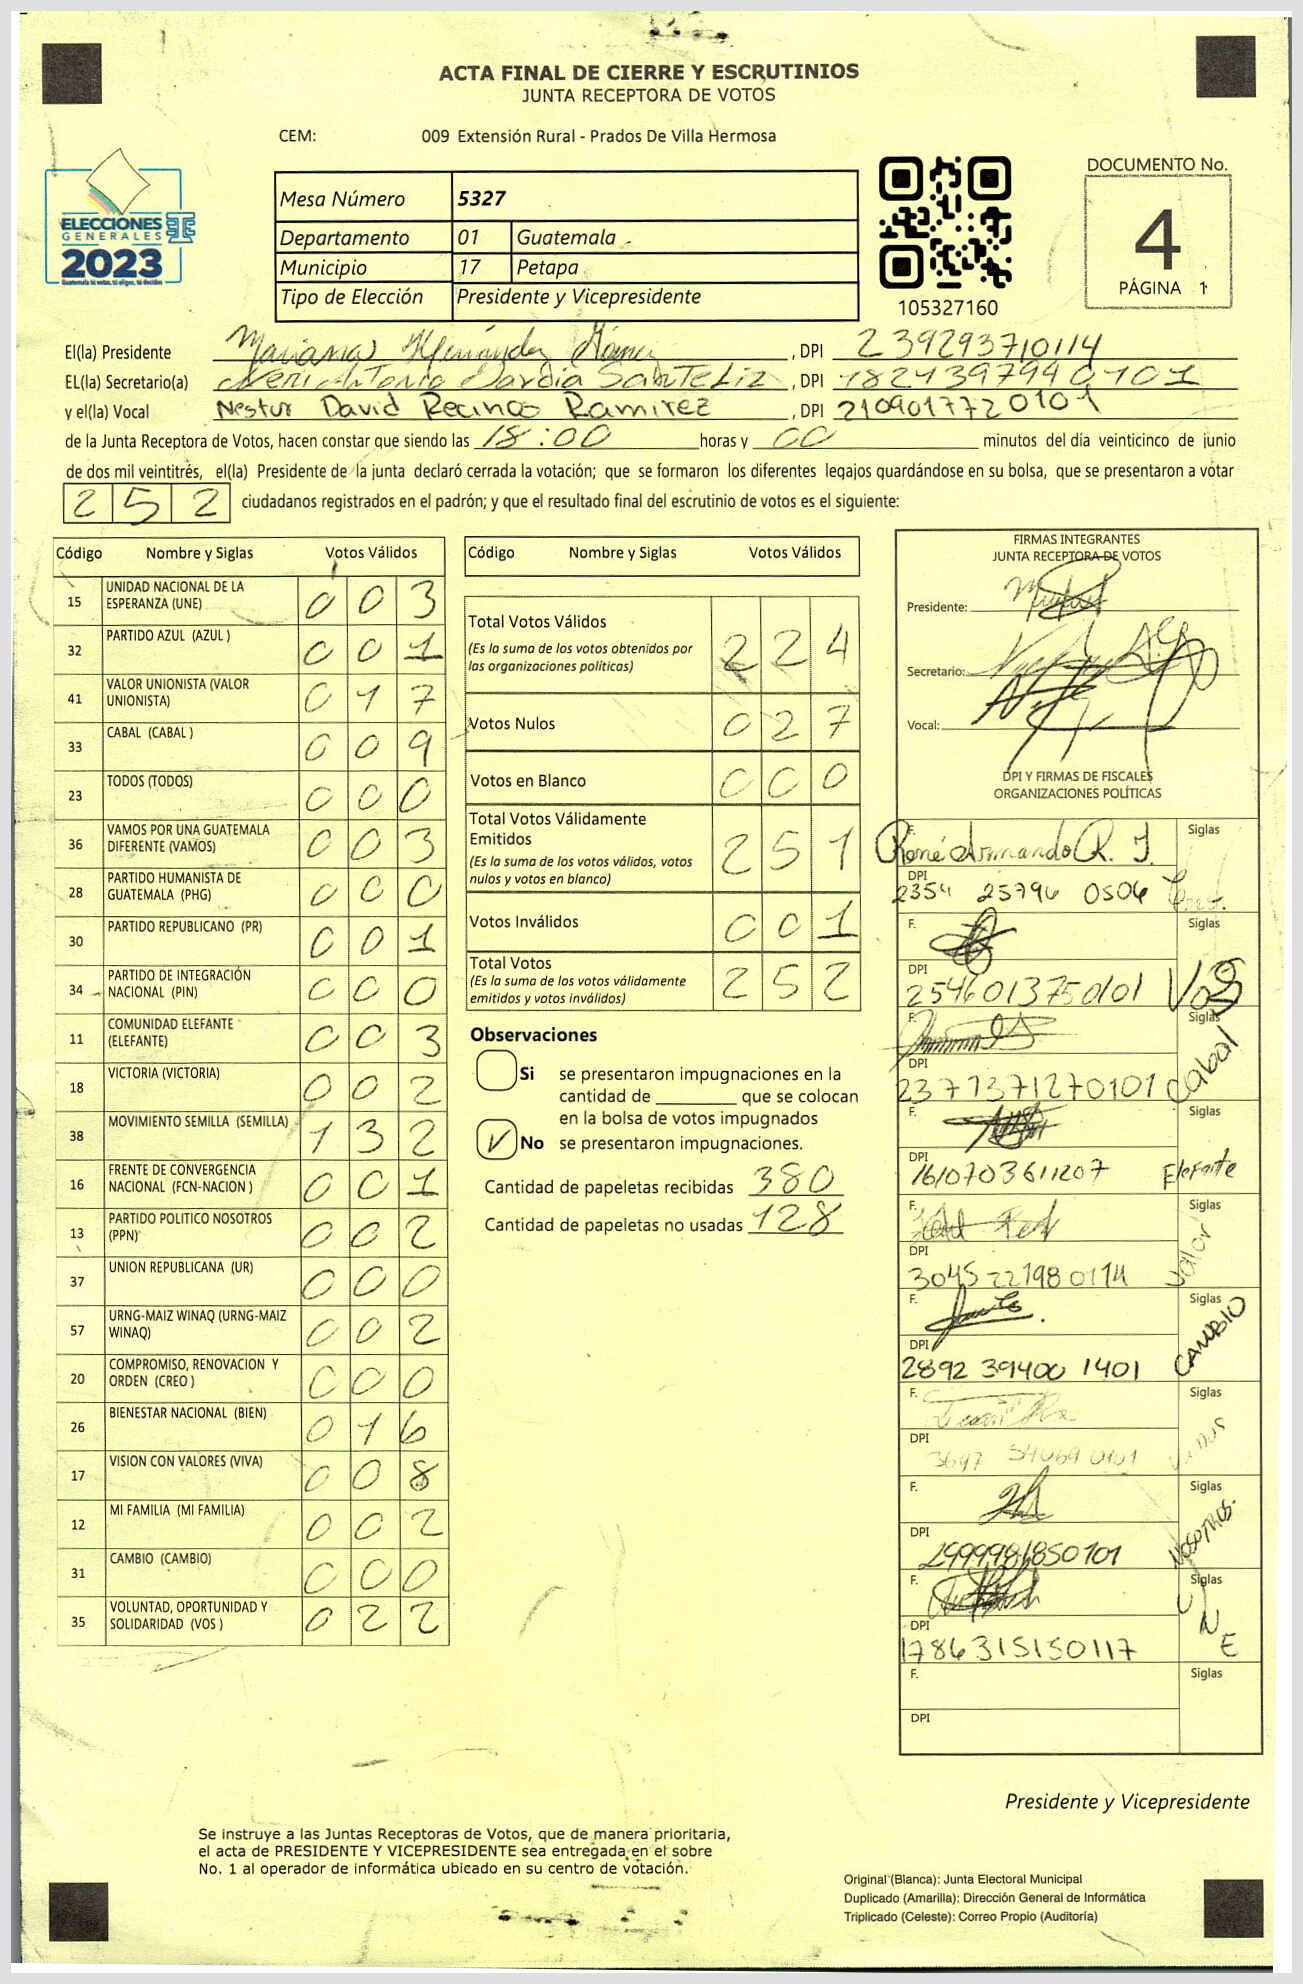 ACTA FINAL DE CIERRE Y ESCRUTINIOS
JUNTA RECEPTORA DE VOTOS
CEM: 009 Extensión Rural - Prados De Villa Hermosa
ELECCIONES
GENERALES
2023
Guatemala tú votas, tú eliges, tú decides
Mesa Número 5327
Departamento 01 Guatemala
Municipio 17 Petapa
Tipo de Elección Presidente y Vicepresidente
105327160
DOCUMENTO No.
4
PÁGINA 1
El(la) Presidente Mariana Hernández Gómez, DPI 239293710114
EL(la) Secretario(a) Antonio García, DPI 1824397940101
y el(la) Vocal Nestor David Recinos Ramirez, DPI 2109017720101
de la Junta Receptora de Votos, hacen constar que siendo las 18:00 horas y 00 minutos del día veinticinco de junio
de dos mil veintitrés, el(la) Presidente de la junta declaró cerrada la votación; que se formaron los diferentes legajos guardándose en su bolsa, que se presentaron a votar
252 ciudadanos registrados en el padrón; y que el resultado final del escrutinio de votos es el siguiente:
Código Nombre y Siglas Votos Válidos
15 UNIDAD NACIONAL DE LA ESPERANZA (UNE) 0 0 3
32 PARTIDO AZUL (AZUL ) 0 0 1
41 VALOR UNIONISTA (VALOR UNIONISTA) 0 1 7
33 CABAL (CABAL ) 0 0 9
23 TODOS (TODOS) 0 0 0
36 VAMOS POR UNA GUATEMALA DIFERENTE (VAMOS) 0 0 3
28 PARTIDO HUMANISTA DE GUATEMALA (PHG) 0 0 0
30 PARTIDO REPUBLICANO (PR) 0 0 1
34 PARTIDO DE INTEGRACIÓN NACIONAL (PIN) 0 0 0
11 COMUNIDAD ELEFANTE (ELEFANTE) 0 0 3
18 VICTORIA (VICTORIA) 0 0 2
38 MOVIMIENTO SEMILLA (SEMILLA) 1 3 2
16 FRENTE DE CONVERGENCIA NACIONAL (FCN-NACION ) 0 0 1
13 PARTIDO POLITICO NOSOTROS (PPN) 0 0 2
37 UNION REPUBLICANA (UR) 0 0 0
57 URNG-MAIZ WINAQ (URNG-MAIZ WINAQ) 0 0 2
20 COMPROMISO, RENOVACION Y ORDEN (CREO ) 0 0 0
26 BIENESTAR NACIONAL (BIEN) 0 1 6
17 VISION CON VALORES (VIVA) 0 0 8
12 MI FAMILIA (MI FAMILIA) 0 0 2
31 CAMBIO (CAMBIO) 0 0 0
35 VOLUNTAD, OPORTUNIDAD Y SOLIDARIDAD (VOS ) 0 2 2
Código Nombre y Siglas Votos Válidos
Total Votos Válidos 2 2 4
(Es la suma de los votos obtenidos por
las organizaciones políticas)
Votos Nulos 0 2 7
Votos en Blanco 0 0 0
Total Votos Válidamente
Emitidos 2 5 1
(Es la suma de los votos válidos, votos
nulos y votos en blanco)
Votos Inválidos 0 0 1
Total Votos 2 5 2
(Es la suma de los votos válidamente
emitidos y votos inválidos)
Observaciones
Si se presentaron impugnaciones en la
cantidad de ________ que se colocan
en la bolsa de votos impugnados
No se presentaron impugnaciones.
Cantidad de papeletas recibidas 380
Cantidad de papeletas no usadas 128
FIRMAS INTEGRANTES
JUNTA RECEPTORA DE VOTOS
Presidente:
Secretario:
Vocal:
DPI Y FIRMAS DE FISCALES
ORGANIZACIONES POLÍTICAS
F. René Armando R. J. Siglas
DPI 2354 25796 0506
F. Siglas VOS
DPI 2546013750101
F. Siglas Cabal
DPI 2371371270101
F. Siglas Elefante
DPI 1610703611207
F. Siglas Valor
DPI 3045 22198 0114
F. Siglas CAMBIO
DPI 2892 39400 1401
F. Siglas
DPI 3697 54069 0101
F. Siglas NOSOTROS
DPI 2999981850101
F. Siglas UNE
DPI 1786315150117
F. Siglas
DPI
Presidente y Vicepresidente
Se instruye a las Juntas Receptoras de Votos, que de manera prioritaria,
el acta de PRESIDENTE Y VICEPRESIDENTE sea entregada en el sobre
No. 1 al operador de informática ubicado en su centro de votación.
Original (Blanca): Junta Electoral Municipal
Duplicado (Amarilla): Dirección General de Informática
Triplicado (Celeste): Correo Propio (Auditoría)